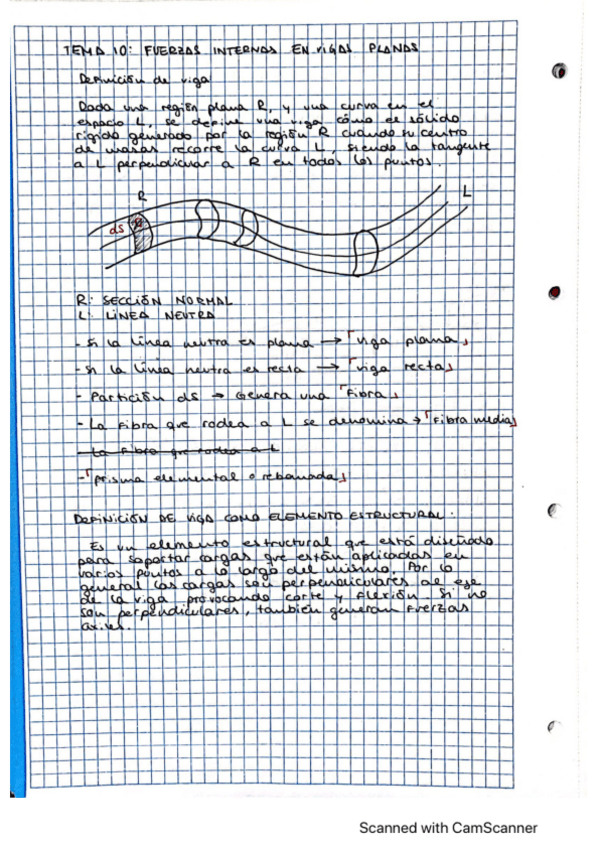 TEMA 10: FUERZAS INTERNAS EN VIGAS PLANAS
Definición de viga
Dada una región plana R, y una curva en el
espacio L, se define una viga cómo el sólido
rígido generado por la región R cuando su centro
de masas recorre la curva L, siendo la tangente
a L perpendicular a R en todos los puntos.
R
L
ds
R: SECCIÓN NORMAL
L: LÍNEA NEUTRA
- Si la línea neutra es plana → "viga plana"
- Si la línea neutra es recta → "viga recta"
- Partición ds → Genera una "Fibra"
- La Fibra que rodea a L se denomina → "Fibra media"
- La Fibra que rodea a L
- "prisma elemental o rebanada"
DEFINICIÓN DE VIGA COMO ELEMENTO ESTRUCTURAL:
Es un elemento estructural que está diseñado
para soportar cargas que están aplicadas en
varios puntos a lo largo del mismo. Por lo
general las cargas son perpendiculares al eje
de la viga provocando corte y flexión. Si no
son perpendiculares, también generan fuerzas
axiles.
Scanned with CamScanner